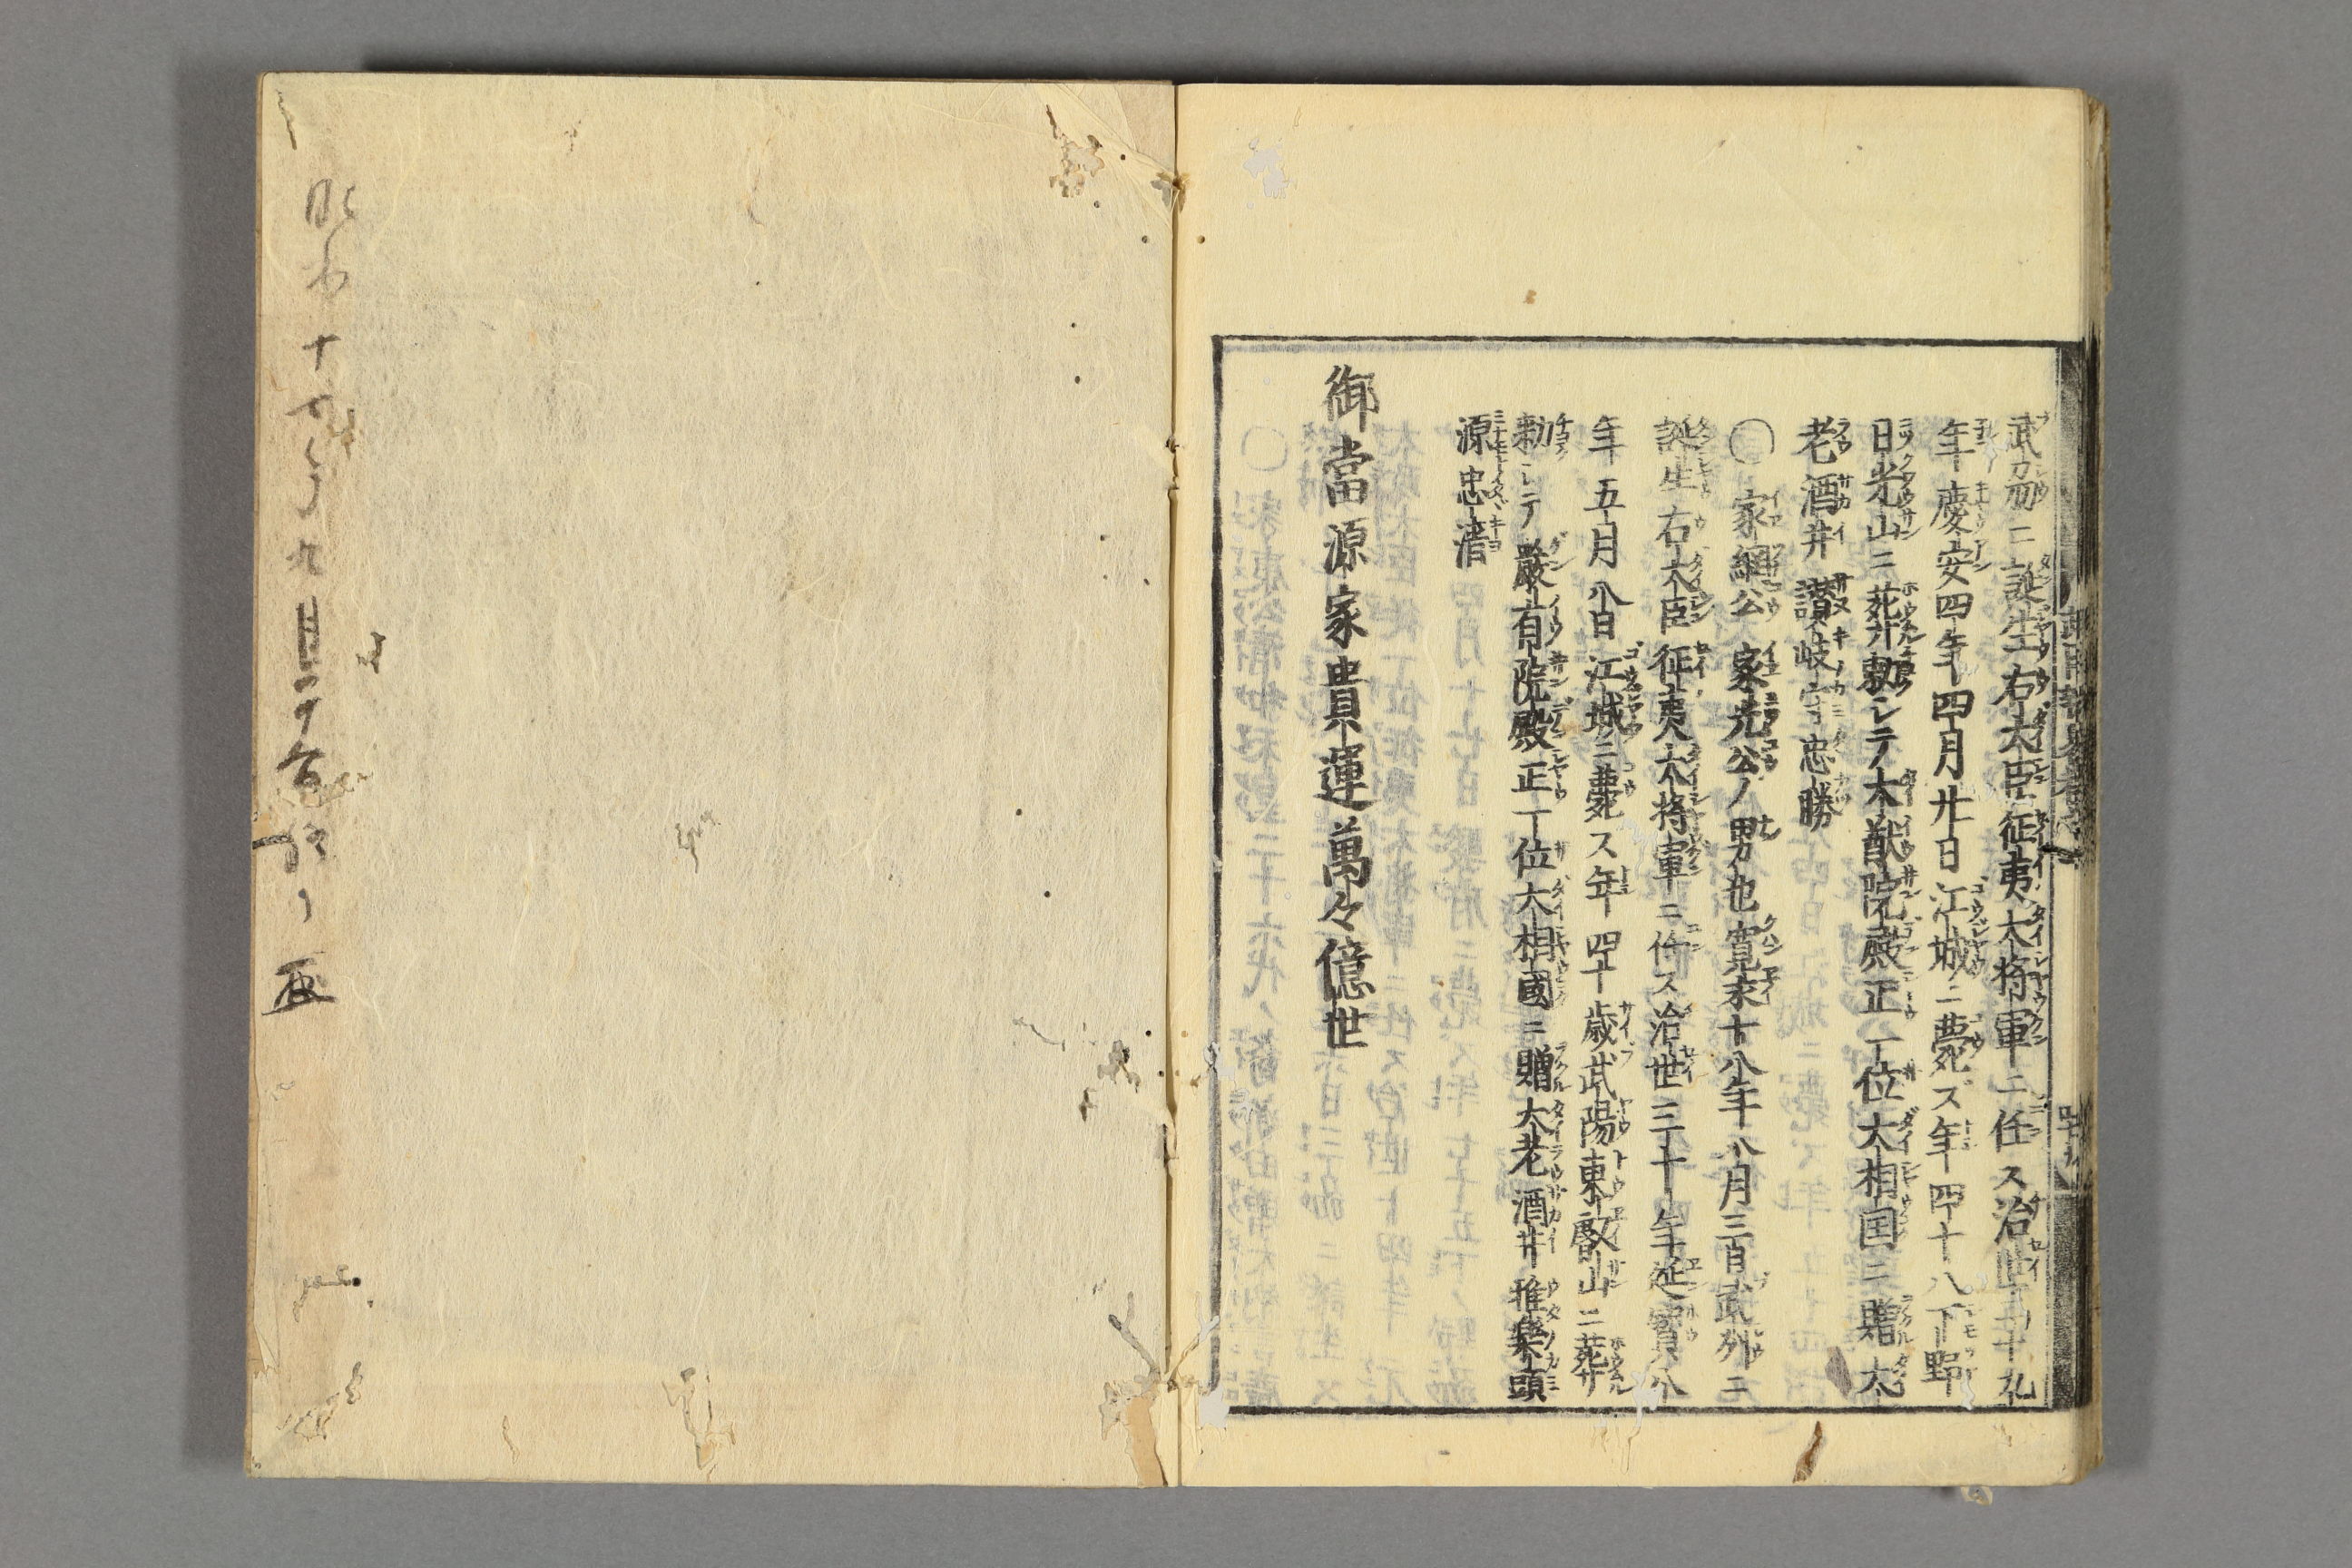 武刕ニ誕生右大臣征夷大将軍ニ任ス治世十九
年慶安四年四月廿日江城ニ薨ズ年四十八下野
日光山ニ葬勅シテ大猷院殿正一位大相国ニ贈大
老酒井讃岐守忠勝
〇家綱公家光公ノ男也寛永十八年八月三日武刕ニ
誕生右大臣征夷大将軍ニ任ス治世三十一年延寳八
年五月八日江城ニ薨ス年四十歳武陽東叡山ニ葬
勅シテ嚴有院殿正一位大相國ニ贈大老酒井雅樂頭
源忠清
御當源家貴運萬々億世
昭和十七年九月二十